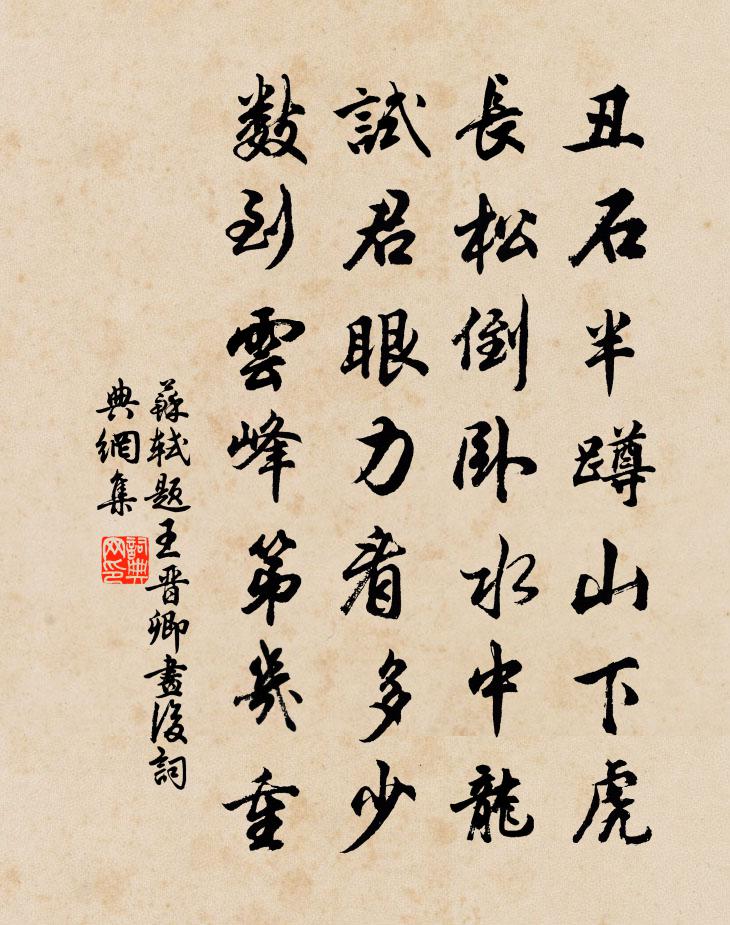 丑石半蹲山下虎
長松倒卧水中龍
試君眼力看多少
數到雲峰第幾重
蘇軾題王晋卿畫後詞
典網集
詞典
网印